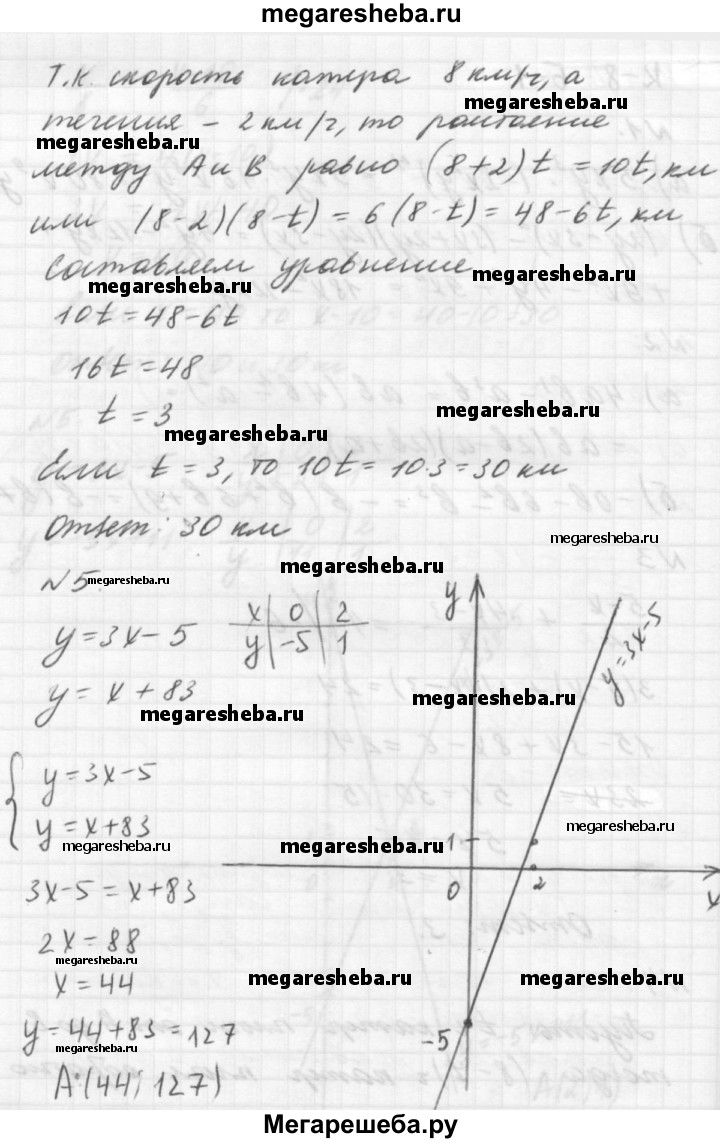 megaresheba.ru
Т.к. скорость катера 8 км/ч, а
megaresheba.ru
течения – 2 км/ч, то расстояние
megaresheba.ru
между А и В равно (8+2)t = 10t, км
или (8-2)(8-t) = 6(8-t) = 48-6t, км
Составляем уравнение
megaresheba.ru megaresheba.ru
10t = 48-6t
16t = 48
t = 3
megaresheba.ru
megaresheba.ru
Если t = 3, то 10t = 10·3 = 30 км
Ответ: 30 км
megaresheba.ru
megaresheba.ru
№5. megaresheba.ru
y = 3x - 5
x | 0 | 2
y | -5 | 1
y = x + 83
megaresheba.ru
megaresheba.ru
y = 3x - 5
y = x + 83
megaresheba.ru
megaresheba.ru
megaresheba.ru
3x - 5 = x + 83
2x = 88
megaresheba.ru
x = 44
megaresheba.ru
megaresheba.ru
y = 44 + 83 = 127
megaresheba.ru
A (44; 127)
y
y = 3x-5
1
0
2
x
-5
Мегарешеба.ру